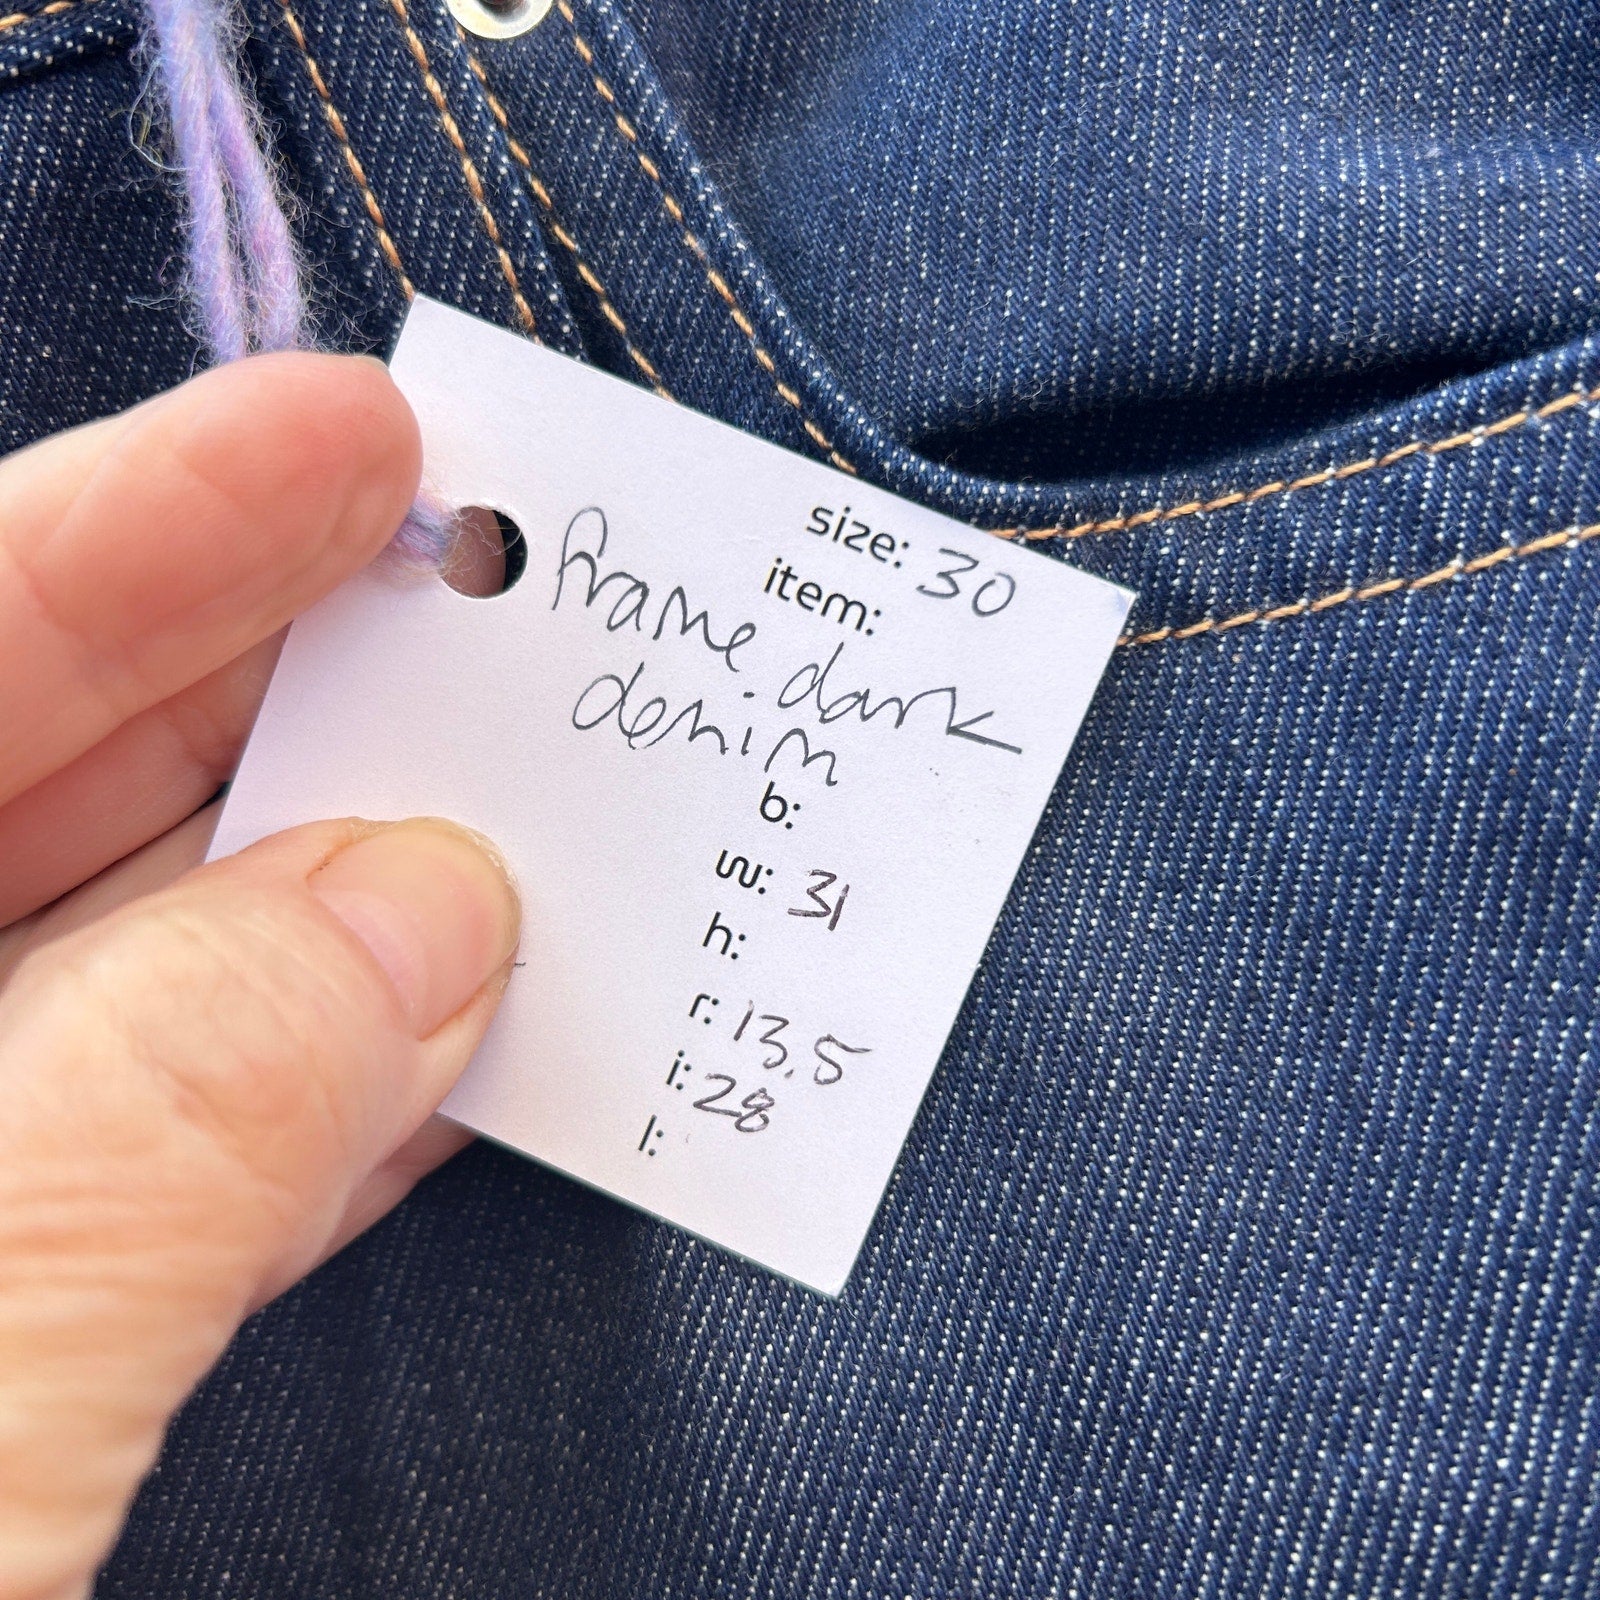 size: 30
item:
frame dark
denim
b:
w: 31
h:
r: 13.5
i: 28
l: